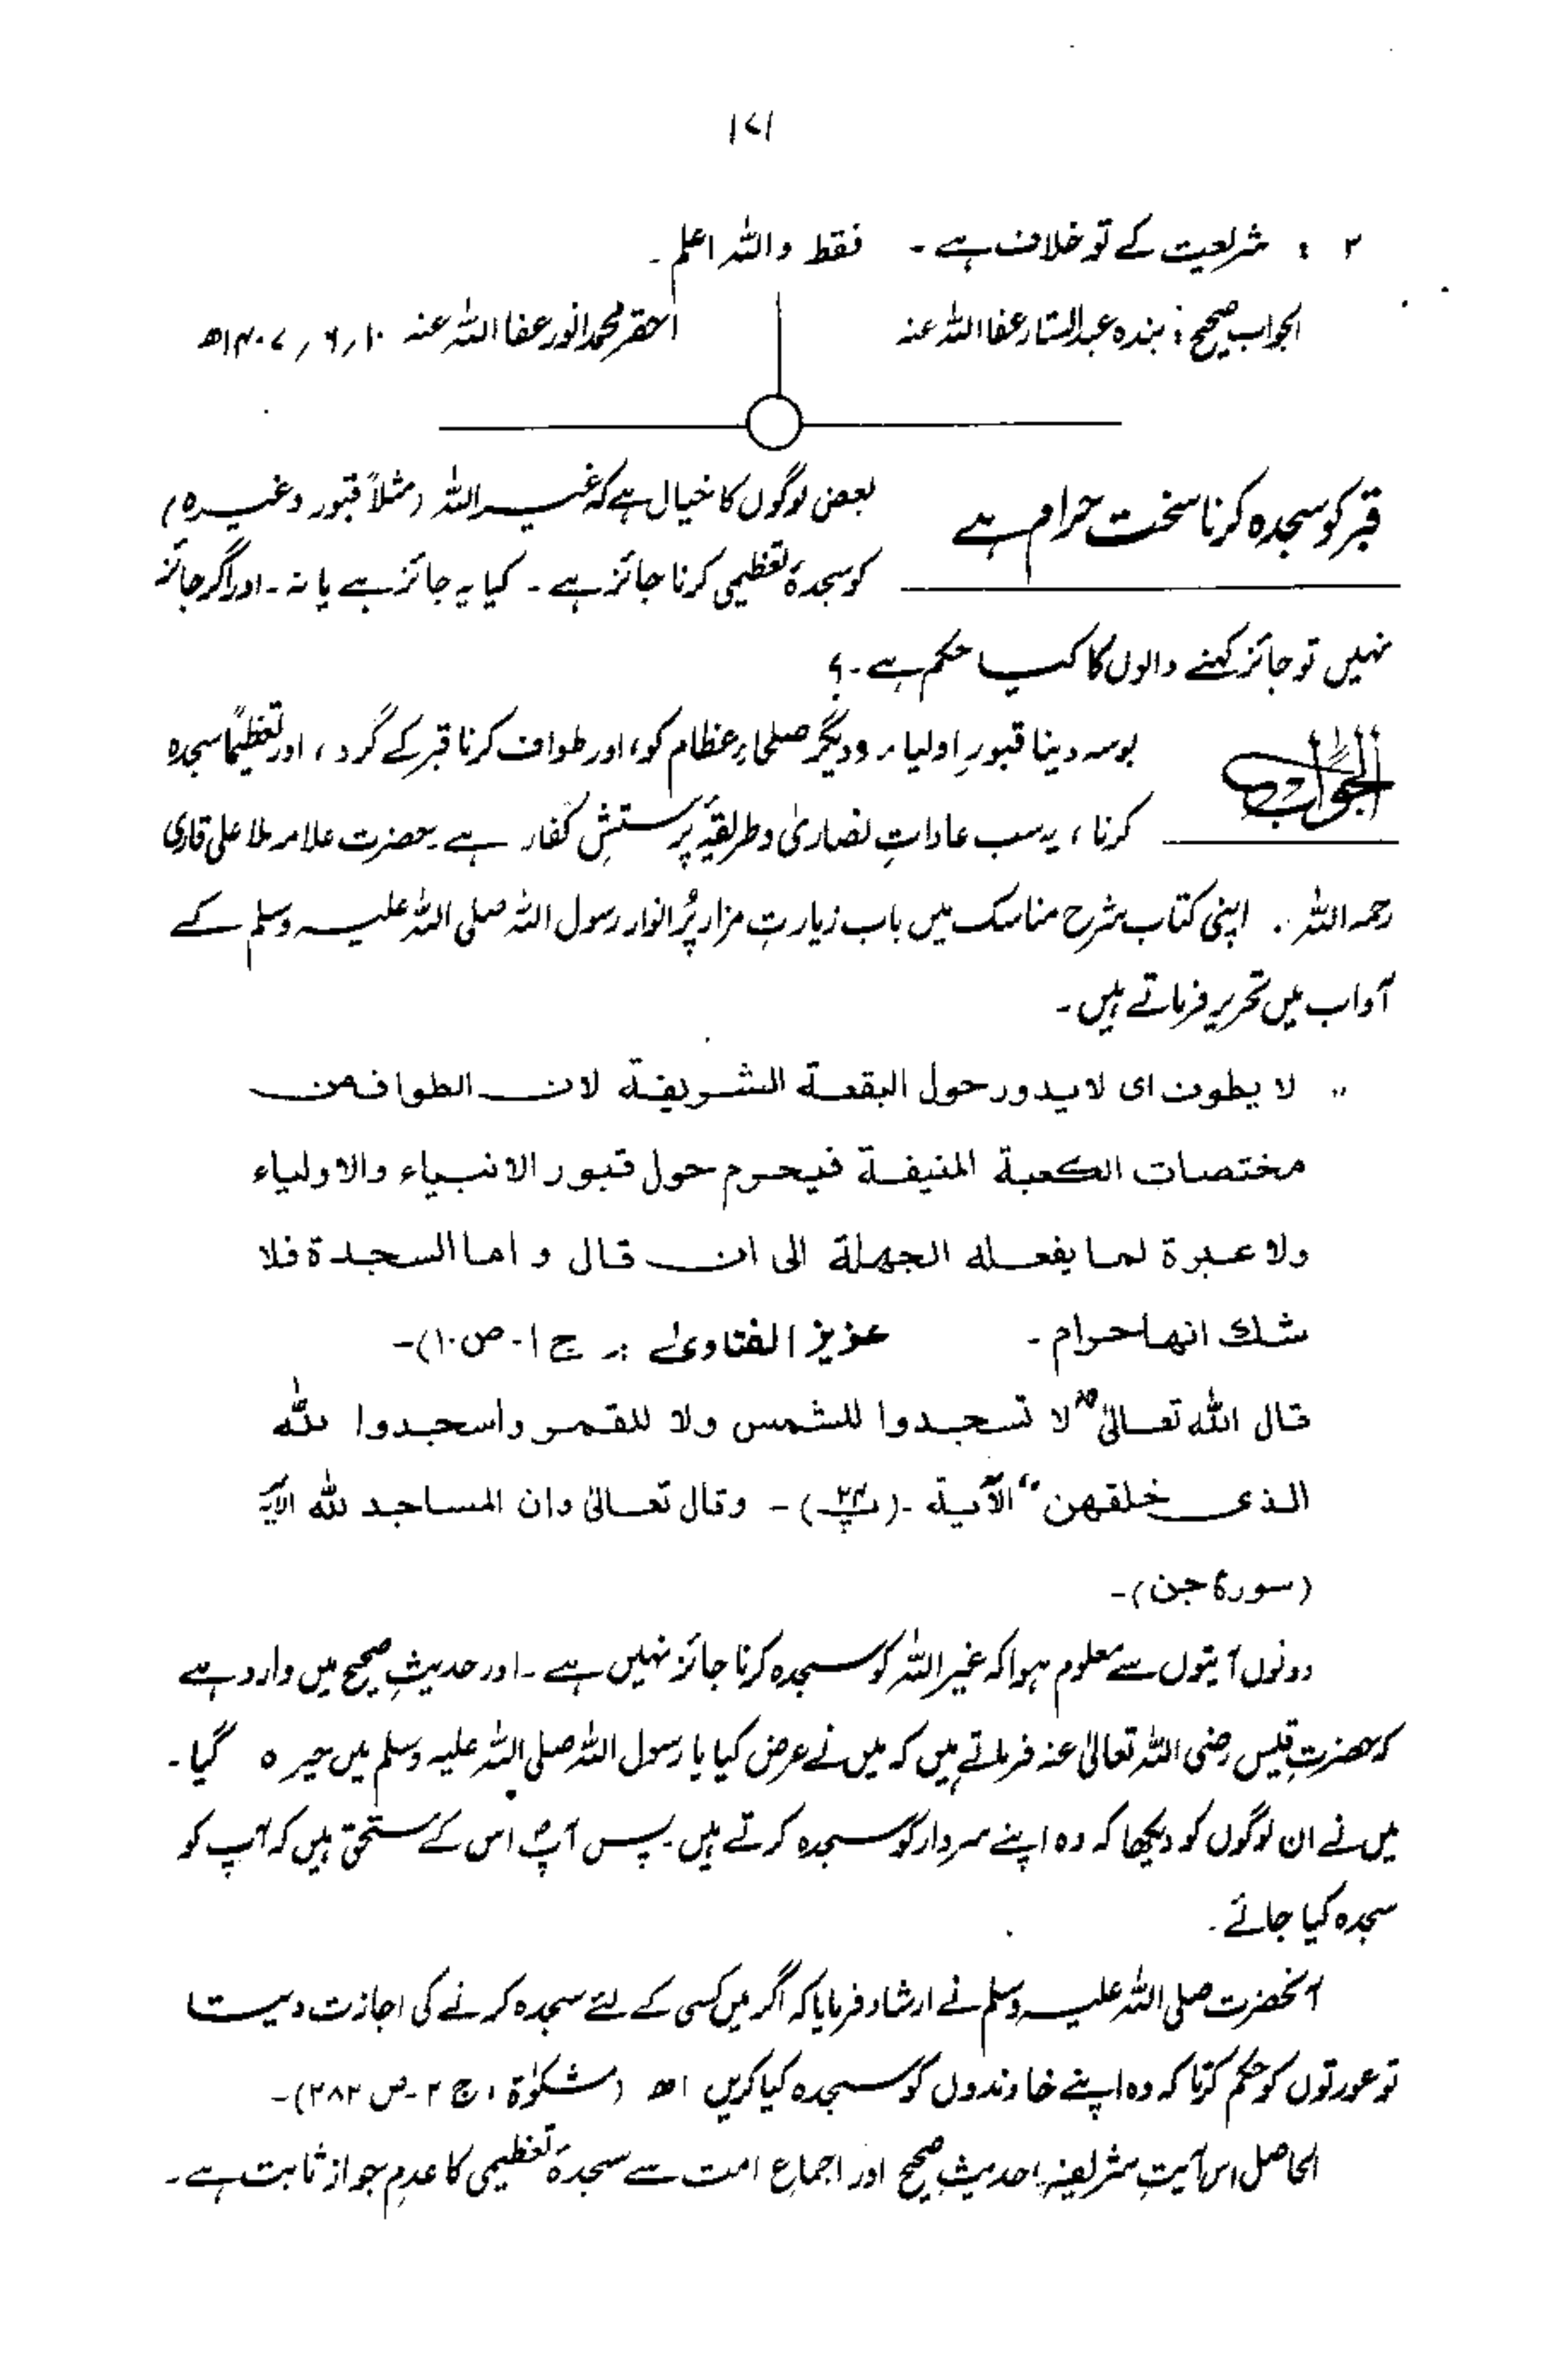 ۱۷۱
۲ : شریعت کے تو خلاف ہے ۔ فقط واللہ اعلم ۔
الجواب صحیح : بندہ عبدالستار عفا اللہ عنہ
احقر محمد انور عفا اللہ عنہ ۱۰ / ۶ / ۱۴۰۷ھ
قبر کو سجدہ کرنا سخت حرام ہے
بعض لوگوں کا خیال ہے کہ غیر اللہ (مثلاً قبور وغیرہ)
کو سجدۂ تعظیمی کرنا جائز ہے ۔ کیا یہ جائز ہے یا نہ ۔ اور اگر جائز
نہیں تو جائز کہنے والوں کا کیا حکم ہے ۔ ؟
الجواب
بوسہ دینا قبورِ اولیاء و دیگر صلحاءِ عظام کو، اور طواف کرنا قبر کے گرد، اور تعظیماً سجدہ
کرنا، یہ سب عاداتِ نصاریٰ و طریقۂ پرستشِ کفار ہے حضرت علامہ ملا علی قاری
رحمہ اللہ ۔ اپنی کتاب شرح مناسک میں باب زیارتِ مزار پُر انوار رسول اللہ صلی اللہ علیہ وسلم کے
آداب میں تحریر فرماتے ہیں ۔
" لا یطوف ای لا یدور حول البقعة الشریفة لان الطواف من
مختصات الکعبة المنیفة فیحرم حول قبور الانبیاء والاولیاء
ولا عبرة لما یفعله الجهلة الی ان قال و اما السجدة فلا
شك انها حرام ۔ عزیز الفتاویٰ : ج ۱ - ص ۱۰) ۔
قال الله تعالیٰ " لا تسجدوا للشمس ولا للقمر واسجدوا لله
الذی خلقهن " الآیة ۔ (پ ۲۴) ۔ وقال تعالیٰ وان المساجد لله الآیة
(سورۂ جن) ۔
دونوں آیتوں سے معلوم ہوا کہ غیر اللہ کو سجدہ کرنا جائز نہیں ہے ۔ اور حدیثِ صحیح میں وارد ہے
کہ حضرتِ قیس رضی اللہ تعالیٰ عنہ فرماتے ہیں کہ میں نے عرض کیا یا رسول اللہ صلی اللہ علیہ وسلم میں حیرہ گیا ۔
میں نے ان لوگوں کو دیکھا کہ وہ اپنے سردار کو سجدہ کرتے ہیں ۔ پس آپؐ اس کے مستحق ہیں کہ آپ کو
سجدہ کیا جائے ۔
آنحضرت صلی اللہ علیہ وسلم نے ارشاد فرمایا کہ اگر میں کسی کے لئے سجدہ کرنے کی اجازت دیتا
تو عورتوں کو حکم کرتا کہ وہ اپنے خاوندوں کو سجدہ کیا کریں اھ (مشکوٰۃ، ج ۲ ۔ ص ۲۸۲) ۔
الحاصل اس آیتِ شریفہ، حدیثِ صحیح اور اجماعِ امت سے سجدۂ تعظیمی کا عدمِ جواز ثابت ہے ۔